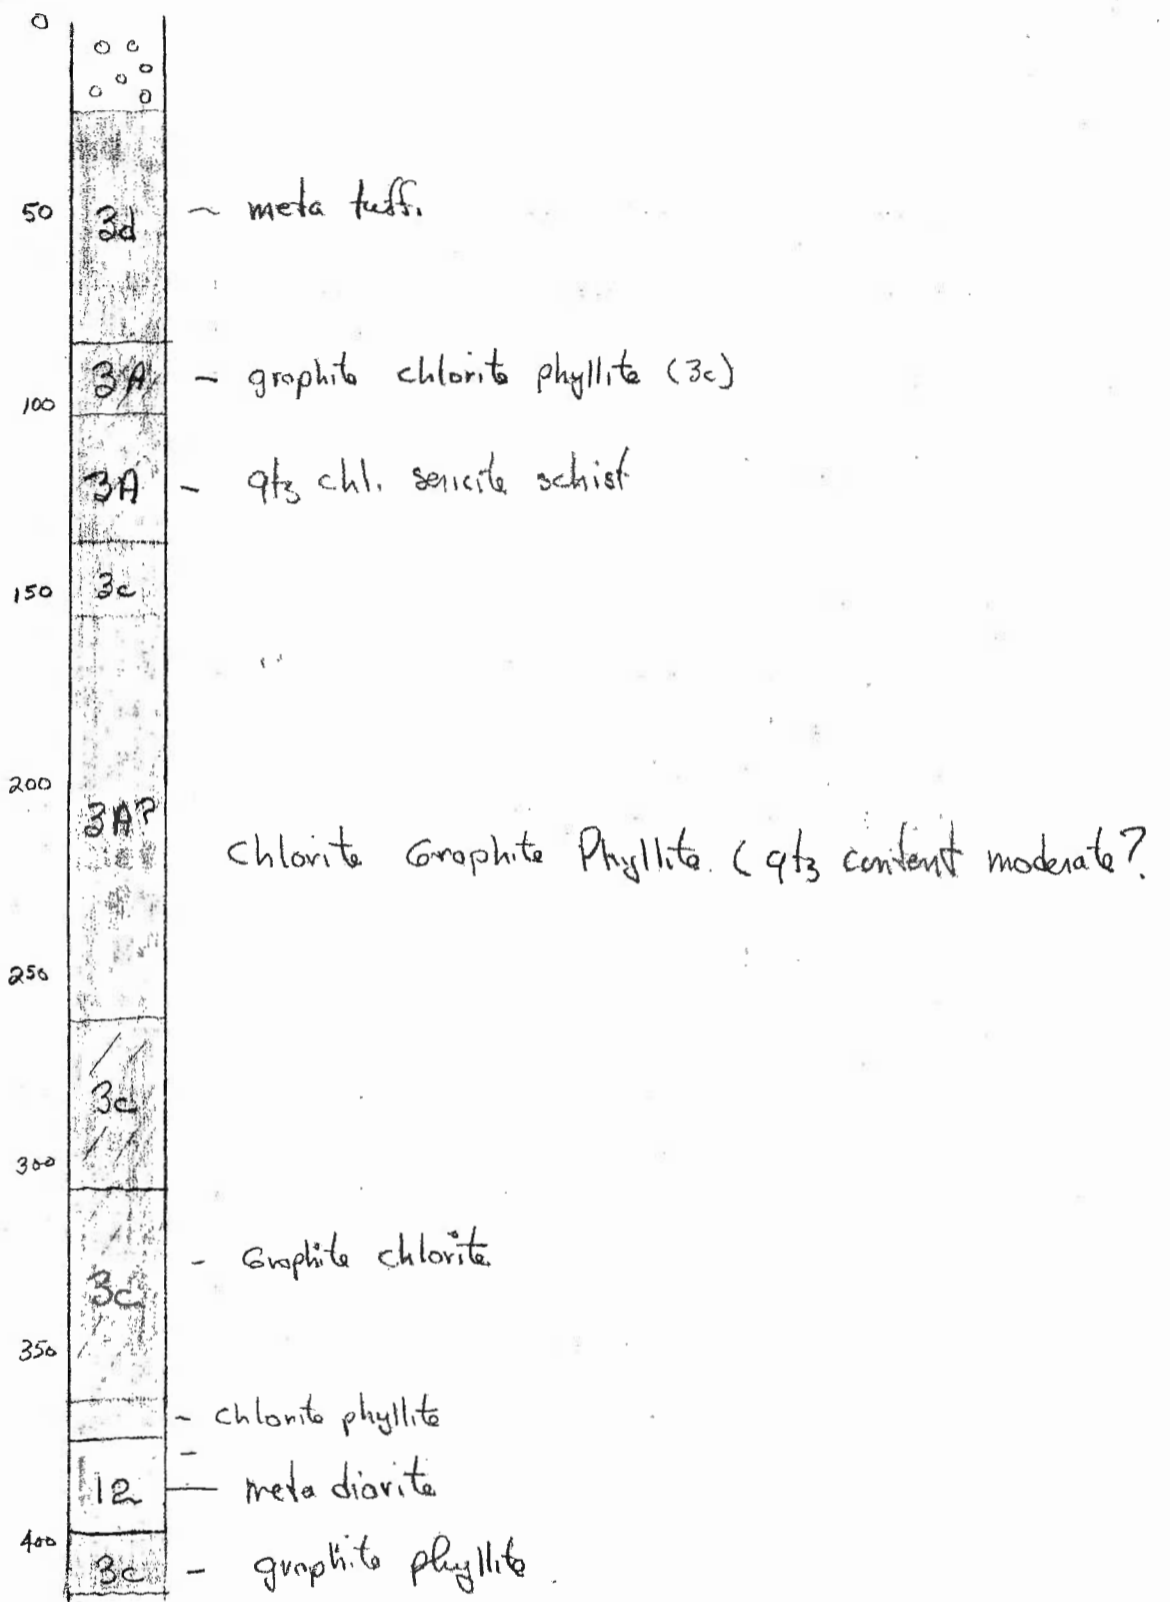 0
50 3d ~ meta tuff.
3A - graphite chlorite phyllite (3c)
100
3A - qtz chl. sericite schist
150 3c
200
3A?
Chlorite Graphite Phyllite. ( qtz content moderate?
250
3c
300
- Graphite chlorite
3c
350
- chlorite phyllite
-
12 — meta diorite
400
3c - graphite phyllite